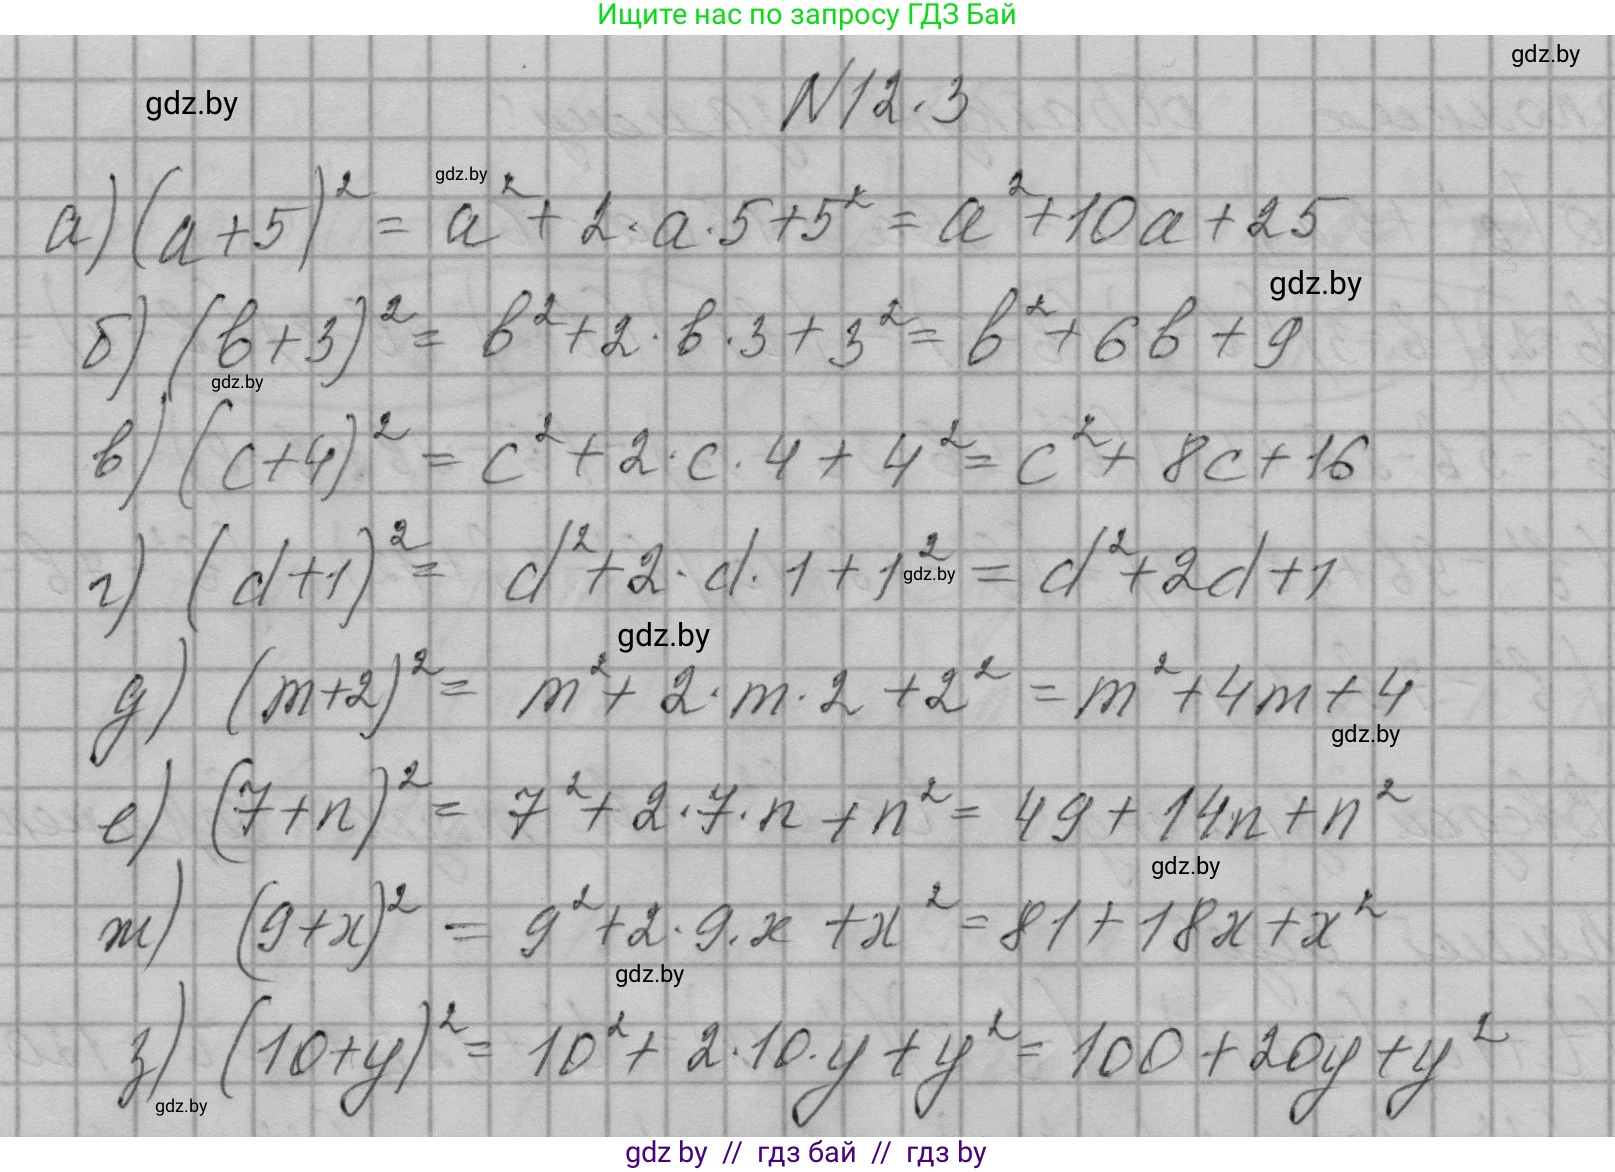 Ищите нас по запросу ГДЗ Бай
gdz.by
gdz.by
N12.3
gdz.by
а) (a+5)² = a² + 2·a·5+5² = a²+10a+25
gdz.by
б) (b+3)² = b²+2·b·3+3² = b²+6b+9
gdz.by
в) (c+4)² = c²+2·c·4+4² = c²+8c+16
г) (d+1)² = d²+2·d·1+1² = d²+2d+1
gdz.by
gdz.by
д) (m+2)² = m²+2·m·2+2² = m²+4m+4
gdz.by
е) (7+n)² = 7²+2·7·n+n² = 49+14n+n²
gdz.by
ж) (9+x)² = 9²+2·9·x+x² = 81+18x+x²
gdz.by
з) (10+y)² = 10²+2·10·y+y² = 100+20y+y²
gdz.by
gdz by // гдз бай // гдз by